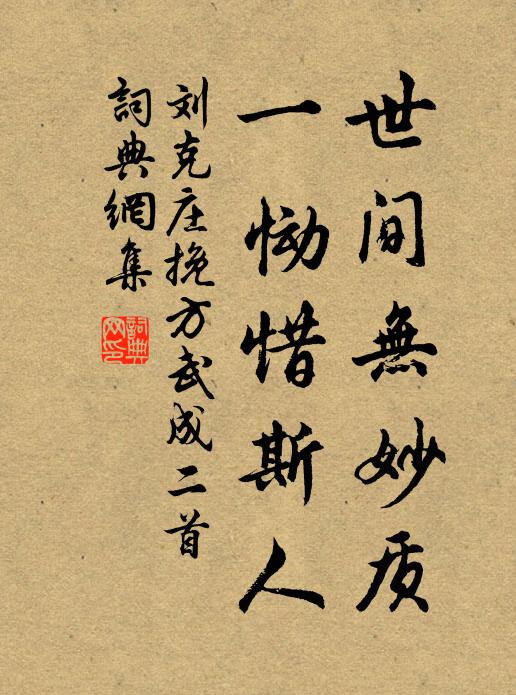 世间無妙质
一恸惜斯人
刘克庄挽方武成二首
詞典網集
詞典网印